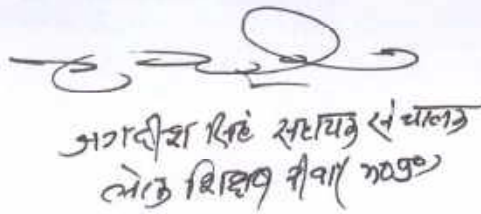 जगदीश सिंह सहायक संचालक
लोक शिक्षण रीवा म०प्र०